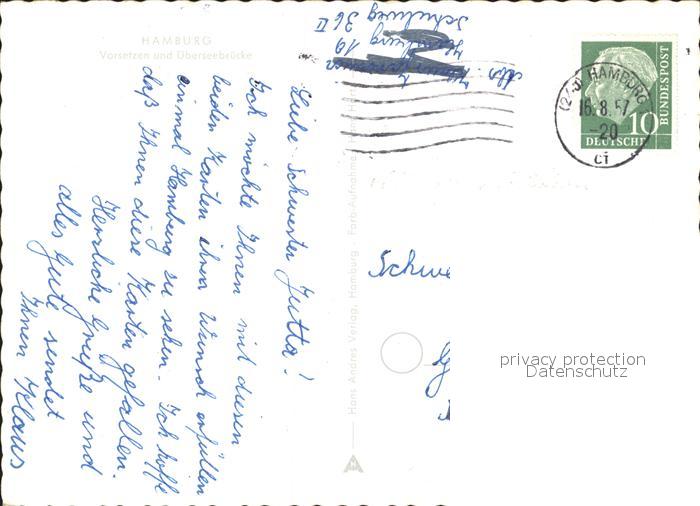 HAMBURG
Vorsetzen und Überseebrücke
Liebe Schwester Jutta!
Ich möchte Ihnen mit diesen
beiden Karten ihren Wunsch erfüllen
einmal Hamburg zu sehen. Ich hoffe
daß Ihnen diese Karten gefallen.
Herzliche Grüße und
alles Gute sendet
Ihnen Klaus
Abs.
Hamburg 19
Schulweg 36 II
Hans Andres Verlag, Hamburg · Farb-Aufnahme
(24a) HAMBURG
16.8.57
-20
cf
10
DEUTSCHE
BUNDESPOST
Schwe
privacy protection
Datenschutz